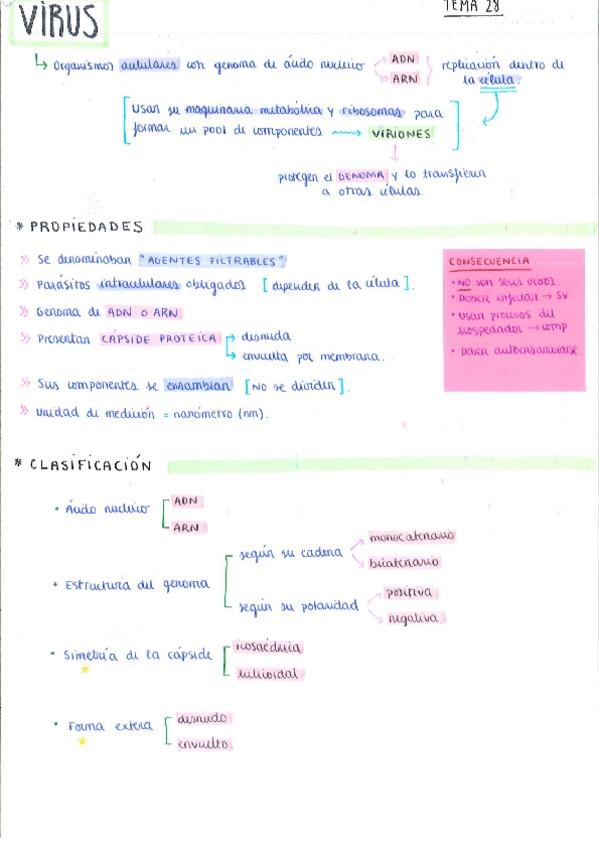 VIRUS
TEMA 28
Organismos acelulares con genoma de ácido nucleico
ADN
ARN
replicación dentro de
la célula.
Usan su maquinaria metabólica y ribosomas para
formar un pool de componentes → VIRIONES
protegen el GENOMA y lo transfieren
a otras células.
* PROPIEDADES
» Se denominaban "AGENTES FILTRABLES"
» Parásitos intracelulares obligados [dependen de la célula].
» Genoma de ADN o ARN
» Presentan CÁPSIDE PROTEICA
→ desnuda
→ envuelta por membrana.
» Sus componentes se ensamblan [NO se dividen].
» Unidad de medición = nanómetro (nm).
CONSECUENCIA
• NO son seres vivos.
• Deben infectar → SV
• Usan procesos del
hospedador → comp.
• Deben autoensamblarse
* CLASIFICACIÓN
• Ácido nucleico
ADN
ARN
• Estructura del genoma
según su cadena
monocatenario
bicatenario
según su polaridad
positiva
negativa
• Simetría de la cápside
icosaédrica
helicoidal
• Forma extera
desnudo
envuelto.